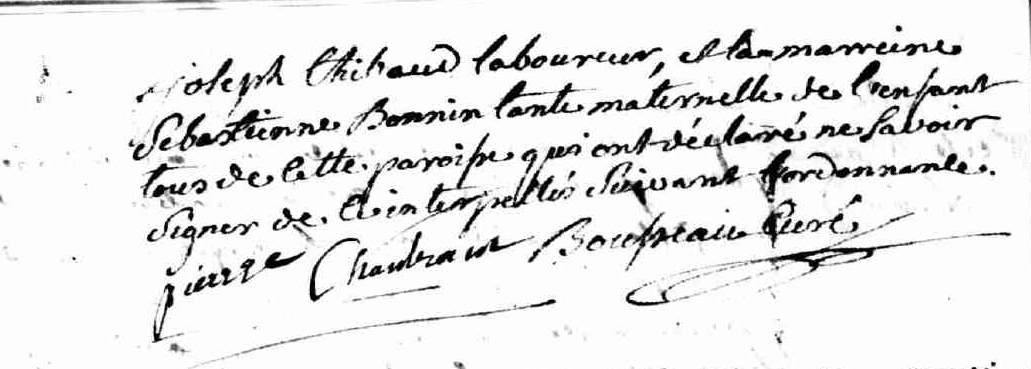 joseph thibaud laboureur, et la marreine
Sebastienne Bonnin tante maternelle de l'enfant
tous de cette paroisse qui ont déclaré ne savoir
signer de ce interpellés suivant l'ordonnance.
pierre Bousseau Curé